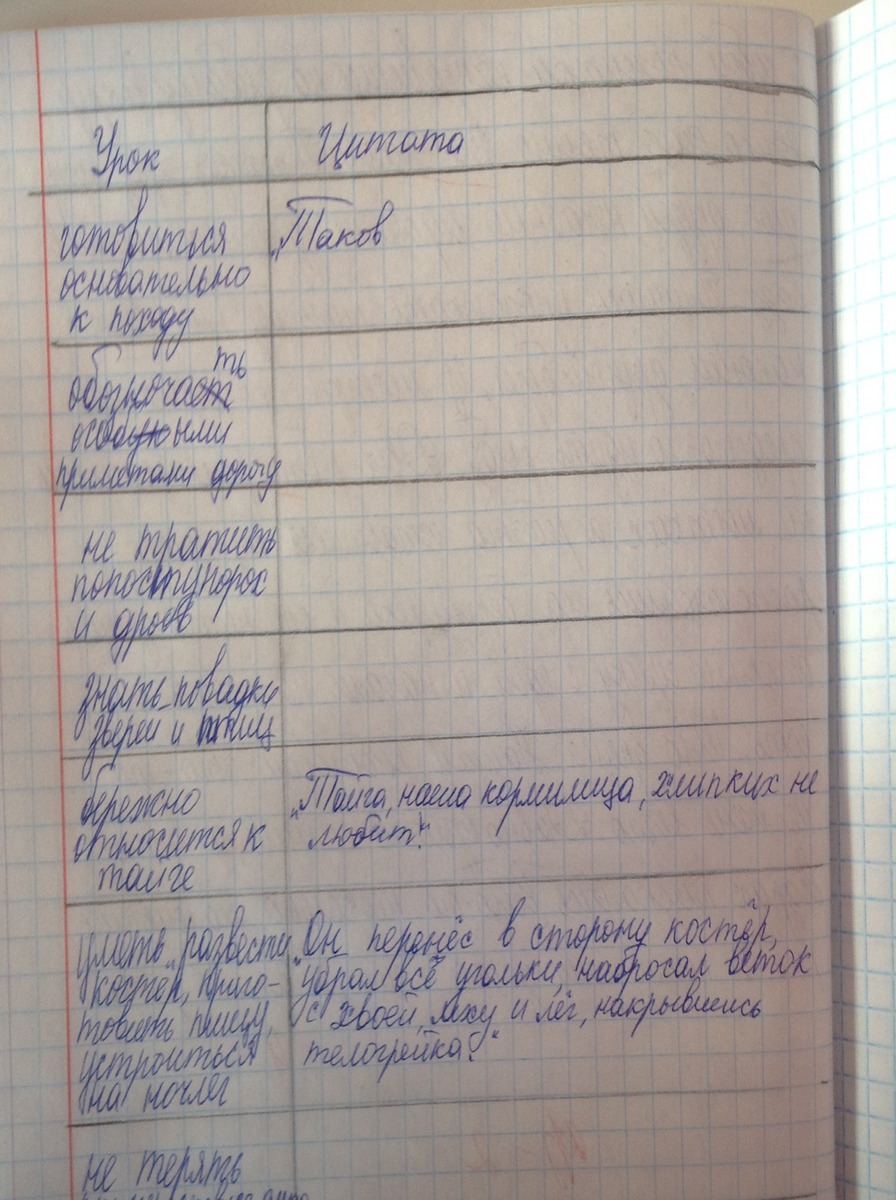 Урок
Цитата
готовиться
основательно
к походу
„Таков
обозначает
ть
особыми
приметами дорогу
не тратить
попосту порох
и дробь
знать повадки
зверей и птиц
бережно
относится к
тайге
„Тайга, наша кормилица, хлипких не
любит!“
уметь развести
костёр, приго-
товить пищу,
устроиться
на ночлег
„Он перенёс в сторону костёр,
убрал всё угольки, набросал веток
с хвоей, мху и лёг, накрывшись
телогрейка.“
не терять